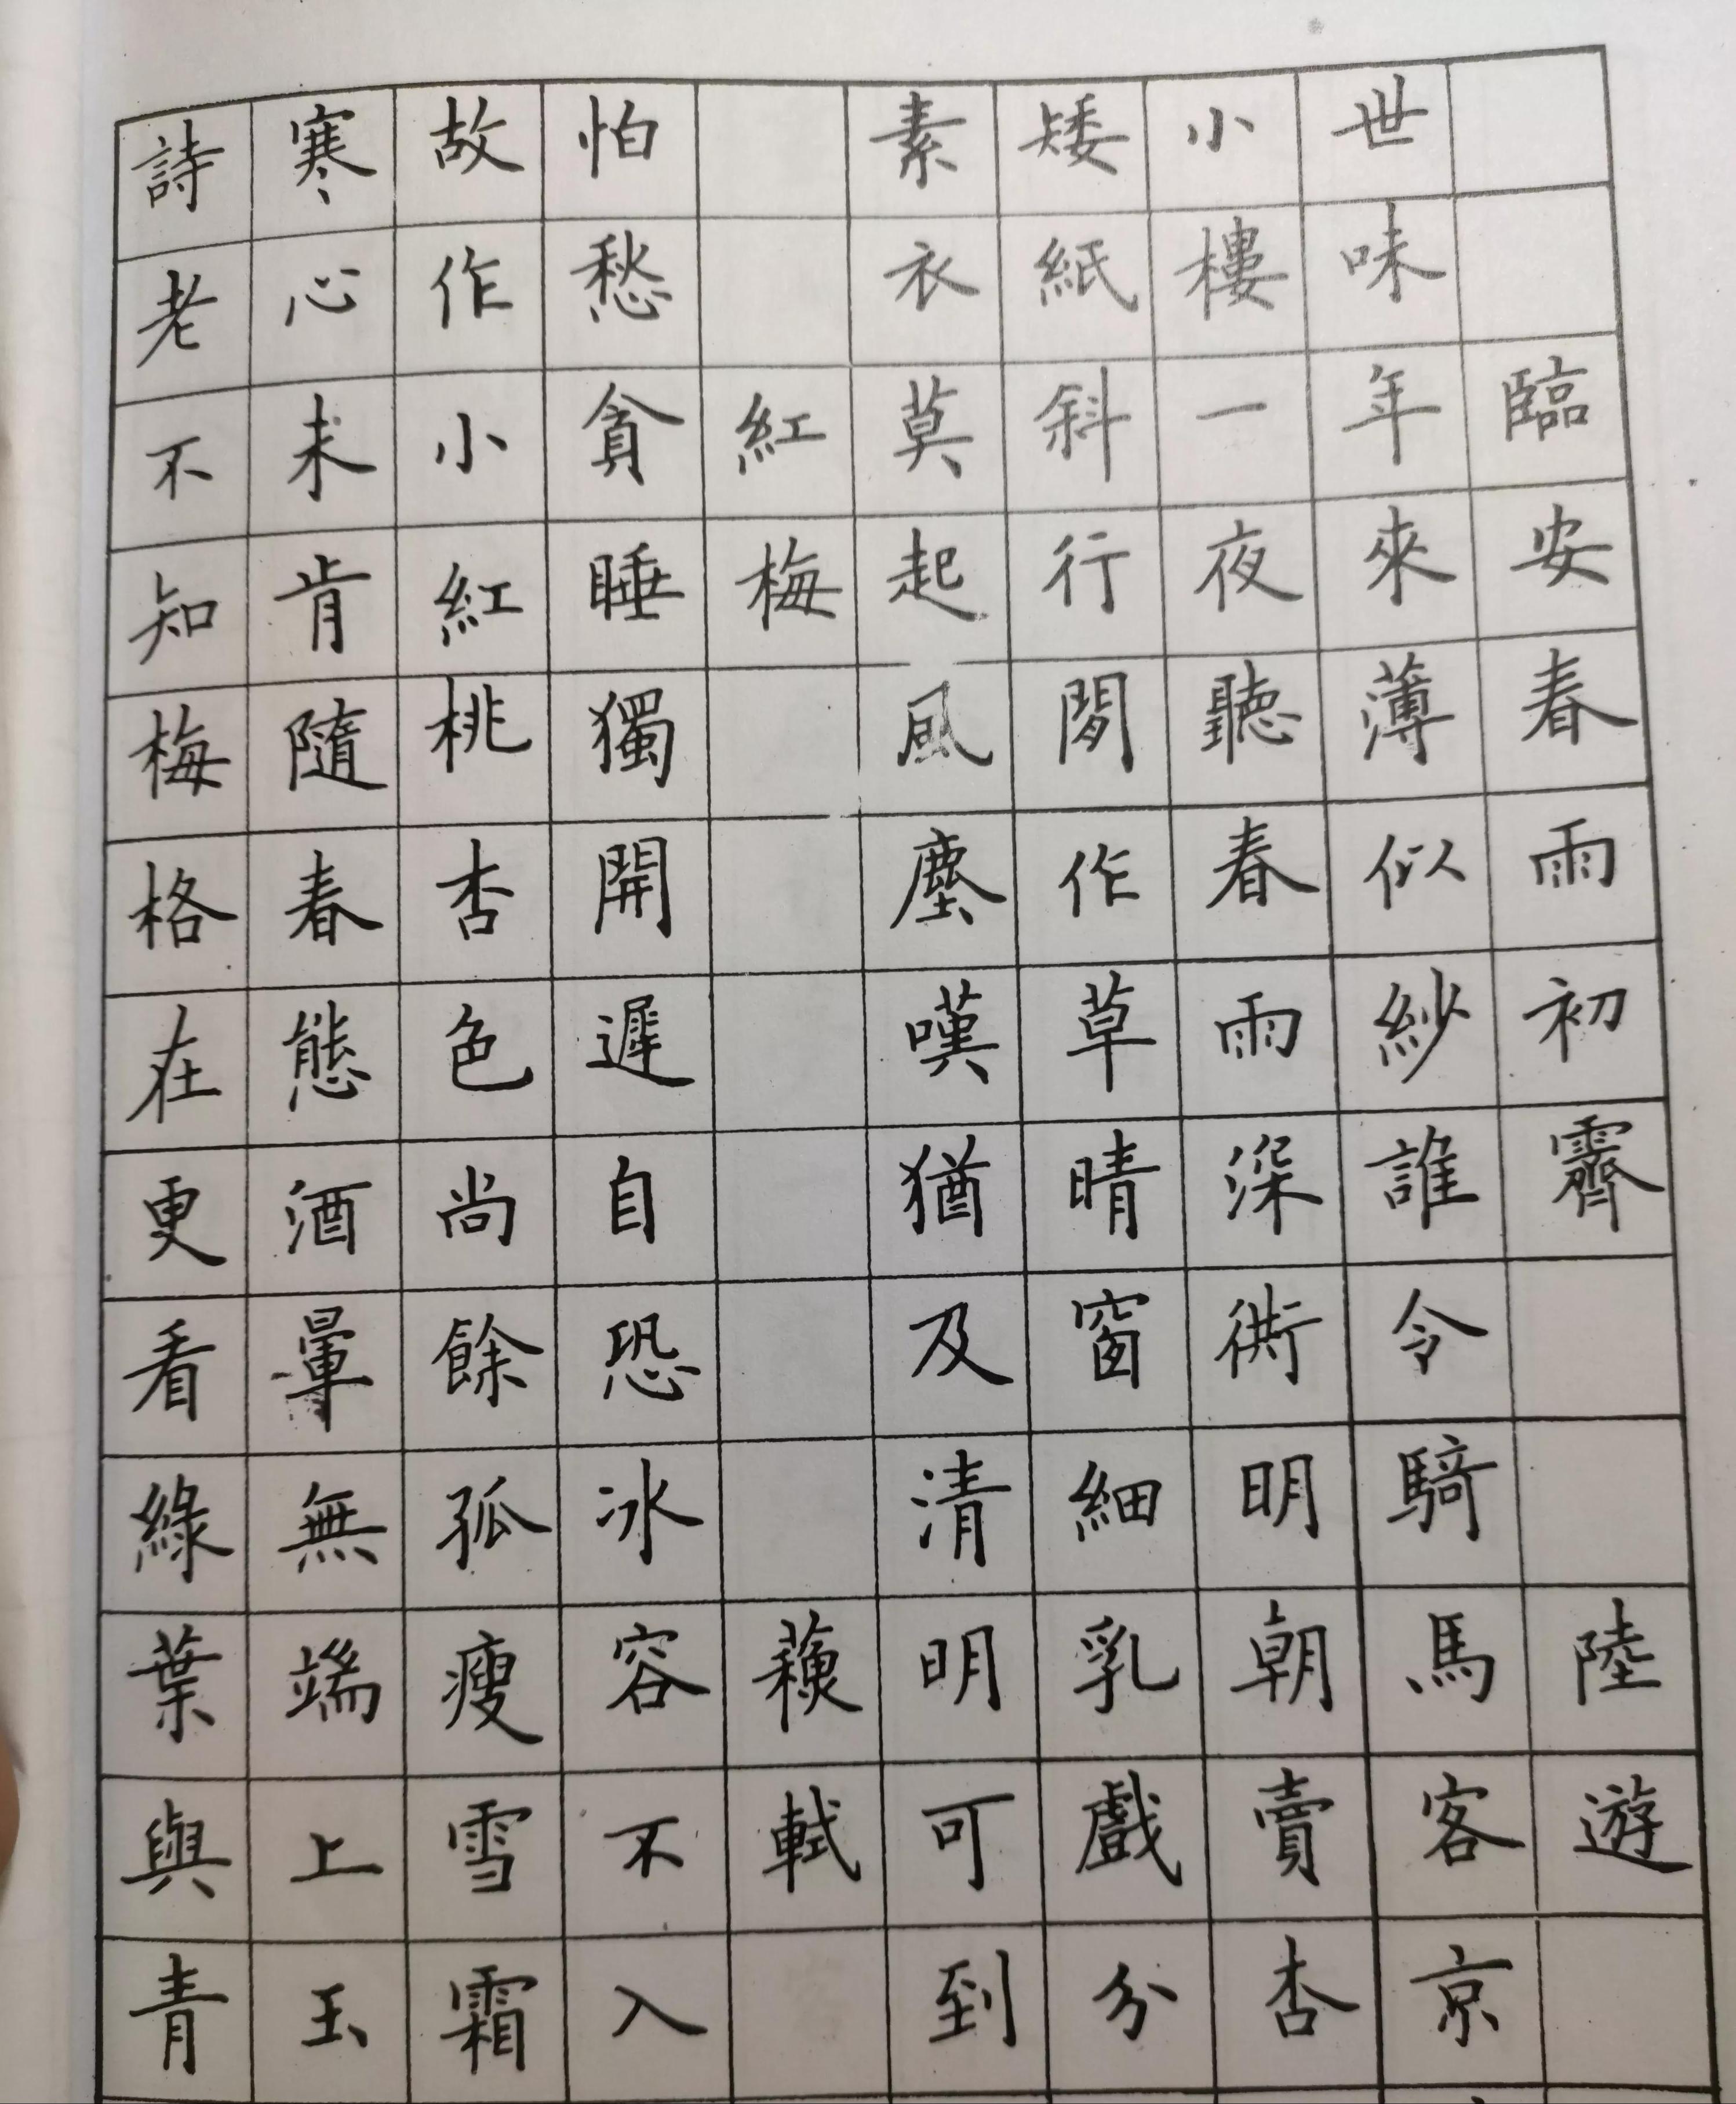 臨安春雨初霽 陸遊
世味年來薄似紗誰令騎馬客京
小樓一夜聽春雨深衖明朝賣杏
矮紙斜行閒作草晴窗細乳戲分
素衣莫起風塵嘆猶及清明可到
紅梅 蘓軾
怕愁貪睡獨開遲自恐冰容不入
故作小紅桃杏色尚餘孤瘦雪霜
寒心未肯隨春態酒暈無端上玉
詩老不知梅格在更看綠葉與青